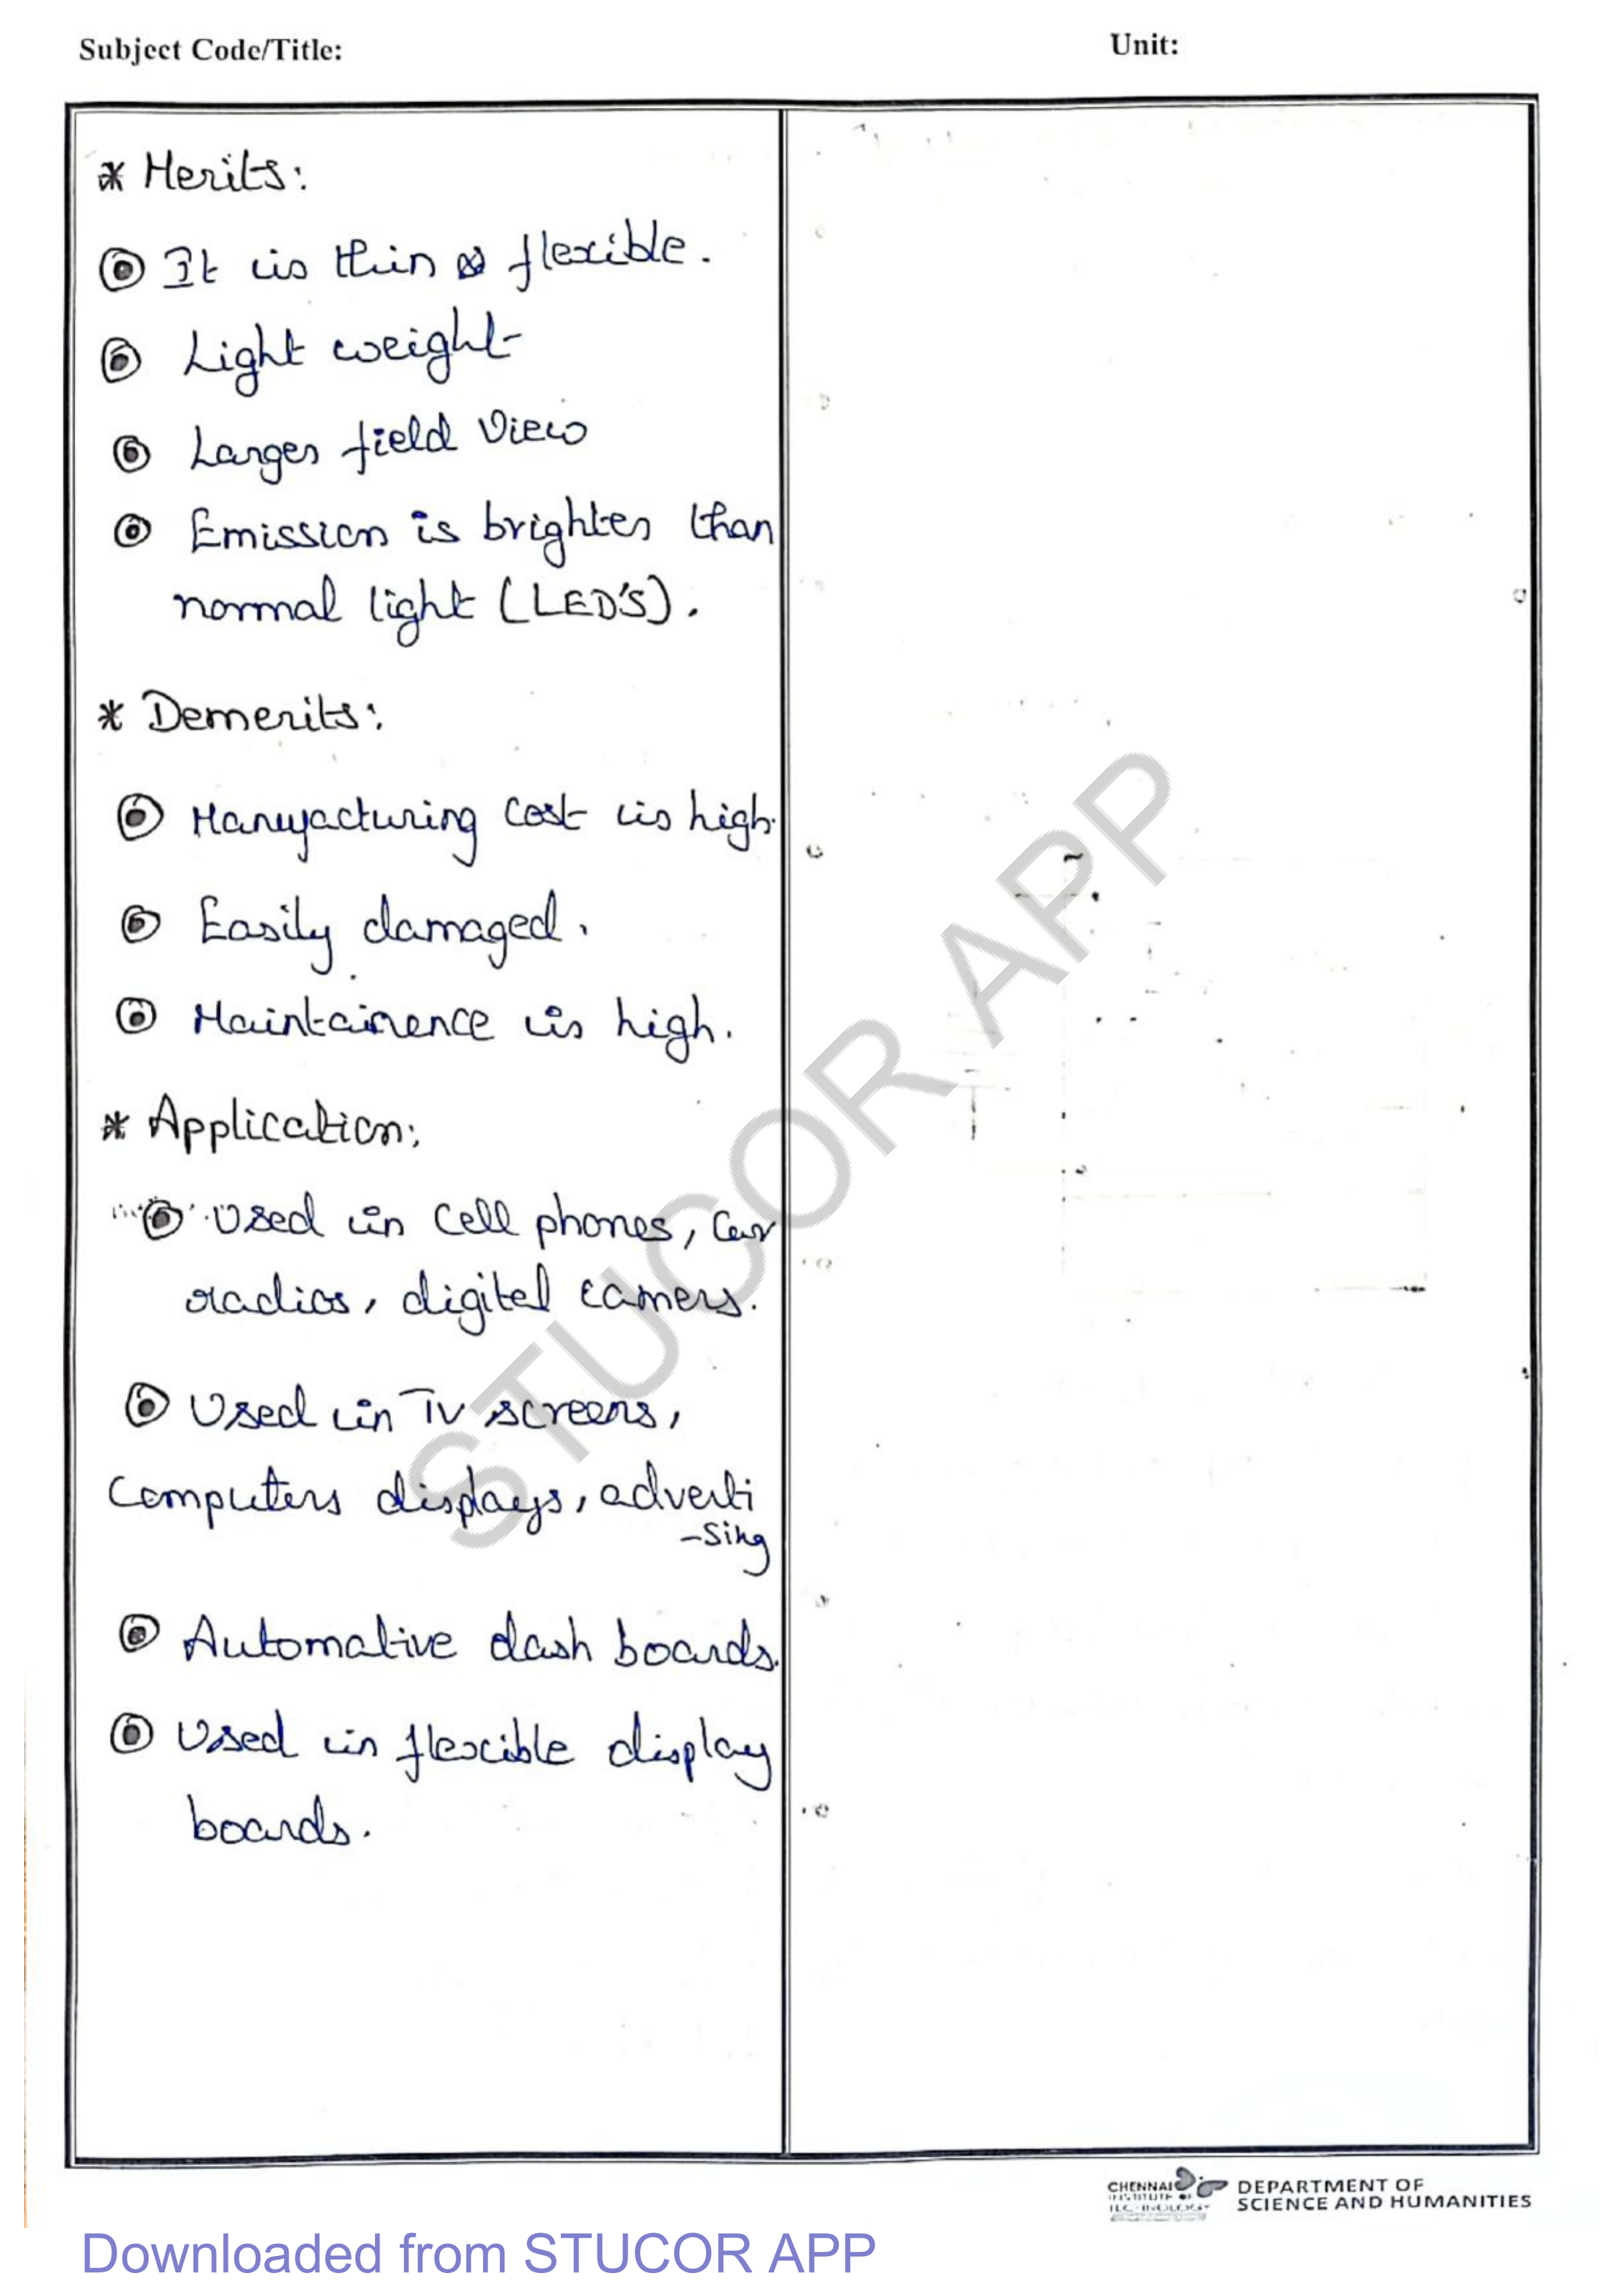 Subject Code/Title:
Unit:
* Merits:
It is thin & flexible.
Light weight
Larger field View
Emission is brighter than
normal light (LED'S).
* Demerits:
Manufacturing cost is high.
Easily damaged.
Maintainence is high.
* Application:
Used in cell phones, Car
radios, digital camers.
Used in TV screens,
Computers displays, adverti
-Sing
Automative dash boards.
Used in flexible display
boards.
STUCOR APP
CHENNAI
INSTITUTE OF
TECHNOLOGY
DEPARTMENT OF
SCIENCE AND HUMANITIES
Downloaded from STUCOR APP